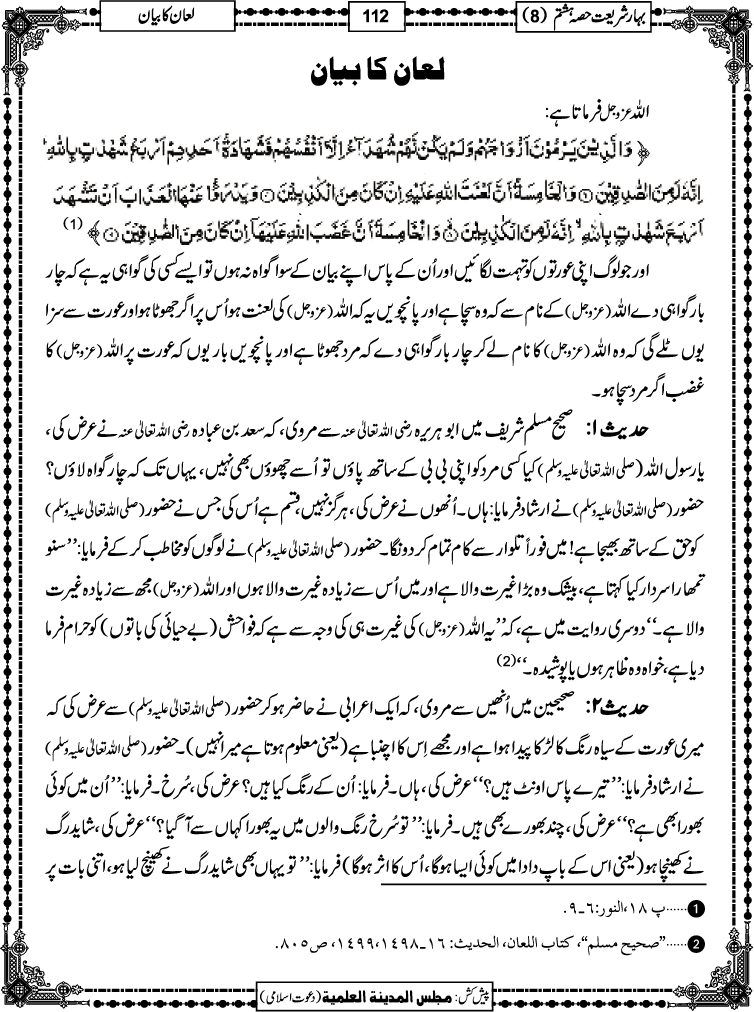 بہارِ شریعت حصہ ہشتم (8)
112
لعان کا بیان
لعان کا بیان
اللہ عزوجل فرماتا ہے:
﴿ وَالَّذِیْنَ یَرْمُوْنَ اَزْوَاجَهُمْ وَلَمْ یَكُنْ لَّهُمْ شُهَدَآءُ اِلَّاۤ اَنْفُسُهُمْ فَشَهَادَةُ اَحَدِهِمْ اَرْبَعُ شَهٰدٰتٍۭ بِاللّٰهِۙ
اِنَّهٗ لَمِنَ الصّٰدِقِیْنَ۝۶ وَالْخَامِسَةُ اَنَّ لَعْنَتَ اللّٰهِ عَلَیْهِ اِنْ كَانَ مِنَ الْكٰذِبِیْنَ۝۷ وَیَدْرَؤُا عَنْهَا الْعَذَابَ اَنْ تَشْهَدَ
اَرْبَعَ شَهٰدٰتٍۭ بِاللّٰهِۙ اِنَّهٗ لَمِنَ الْكٰذِبِیْنَ۝۸ۙ وَالْخَامِسَةَ اَنَّ غَضَبَ اللّٰهِ عَلَیْهَاۤ اِنْ كَانَ مِنَ الصّٰدِقِیْنَ۝۹ ﴾ (1)
اور جو لوگ اپنی عورتوں کو تہمت لگائیں اور اُن کے پاس اپنے بیان کے سوا گواہ نہ ہوں تو ایسے کسی کی گواہی یہ ہے کہ چار
بار گواہی دے اللہ (عزوجل) کے نام سے کہ وہ سچا ہے اور پانچویں یہ کہ اللہ (عزوجل) کی لعنت ہو اُس پر اگر جھوٹا ہو اور عورت سے سزا
یوں ٹلے گی کہ وہ اللہ (عزوجل) کا نام لے کر چار بار گواہی دے کہ مرد جھوٹا ہے اور پانچویں بار یوں کہ عورت پر اللہ (عزوجل) کا
غضب اگر مرد سچا ہو۔
حدیث ۱: صحیح مسلم شریف میں ابو ہریرہ رضی اللہ تعالیٰ عنہ سے مروی، کہ سعد بن عبادہ رضی اللہ تعالیٰ عنہ نے عرض کی،
یا رسول اللہ (صلی اللہ تعالیٰ علیہ وسلم) کیا کسی مرد کو اپنی بی بی کے ساتھ پاؤں تو اُسے چھوؤں بھی نہیں، یہاں تک کہ چار گواہ لاؤں؟
حضور (صلی اللہ تعالیٰ علیہ وسلم) نے ارشاد فرمایا: ہاں۔ اُنھوں نے عرض کی، ہرگز نہیں، قسم ہے اُس کی جس نے حضور (صلی اللہ تعالیٰ علیہ وسلم)
کو حق کے ساتھ بھیجا ہے! میں فوراً تلوار سے کام تمام کر دونگا۔ حضور (صلی اللہ تعالیٰ علیہ وسلم) نے لوگوں کو مخاطب کر کے فرمایا: ’’سنو
تمھارا سردار کیا کہتا ہے، بیشک وہ بڑا غیرت والا ہے اور میں اُس سے زیادہ غیرت والا ہوں اور اللہ (عزوجل) مجھ سے زیادہ غیرت
والا ہے۔‘‘ دوسری روایت میں ہے، کہ ’’یہ اللہ (عزوجل) کی غیرت ہی کی وجہ سے ہے کہ فواحش (بے حیائی کی باتوں) کو حرام فرما
دیا ہے، خواہ وہ ظاہر ہوں یا پوشیدہ۔‘‘ (2)
حدیث ۲: صحیحین میں اُنھیں سے مروی، کہ ایک اعرابی نے حاضر ہو کر حضور (صلی اللہ تعالیٰ علیہ وسلم) سے عرض کی کہ
میری عورت کے سیاہ رنگ کا لڑکا پیدا ہوا ہے اور مجھے اِس کا اچنبا ہے (یعنی معلوم ہوتا ہے میرا نہیں)۔ حضور (صلی اللہ تعالیٰ علیہ وسلم)
نے ارشاد فرمایا: ’’تیرے پاس اونٹ ہیں؟‘‘ عرض کی، ہاں۔ فرمایا: اُن کے رنگ کیا ہیں؟ عرض کی، سُرخ۔ فرمایا: ’’اُن میں کوئی
بھورا بھی ہے؟‘‘ عرض کی، چند بھورے بھی ہیں۔ فرمایا: ’’تو سُرخ رنگ والوں میں یہ بھورا کہاں سے آ گیا؟‘‘ عرض کی، شاید رگ
نے کھینچا ہو (یعنی اس کے باپ دادا میں کوئی ایسا ہوگا، اُس کا اثر ہوگا) فرمایا: ’’تو یہاں بھی شاید رگ نے کھینچ لیا ہو، اتنی بات پر
1 ......پ ۱۸، النور: ۶۔۹.
2 ......”صحیح مسلم“، کتاب اللعان، الحدیث: ۱۶۔۱۴۹۸،۱۴۹۹، ص ۸۰۵.
پیش کش: مجلس المدینۃ العلمیۃ (دعوت اسلامی)